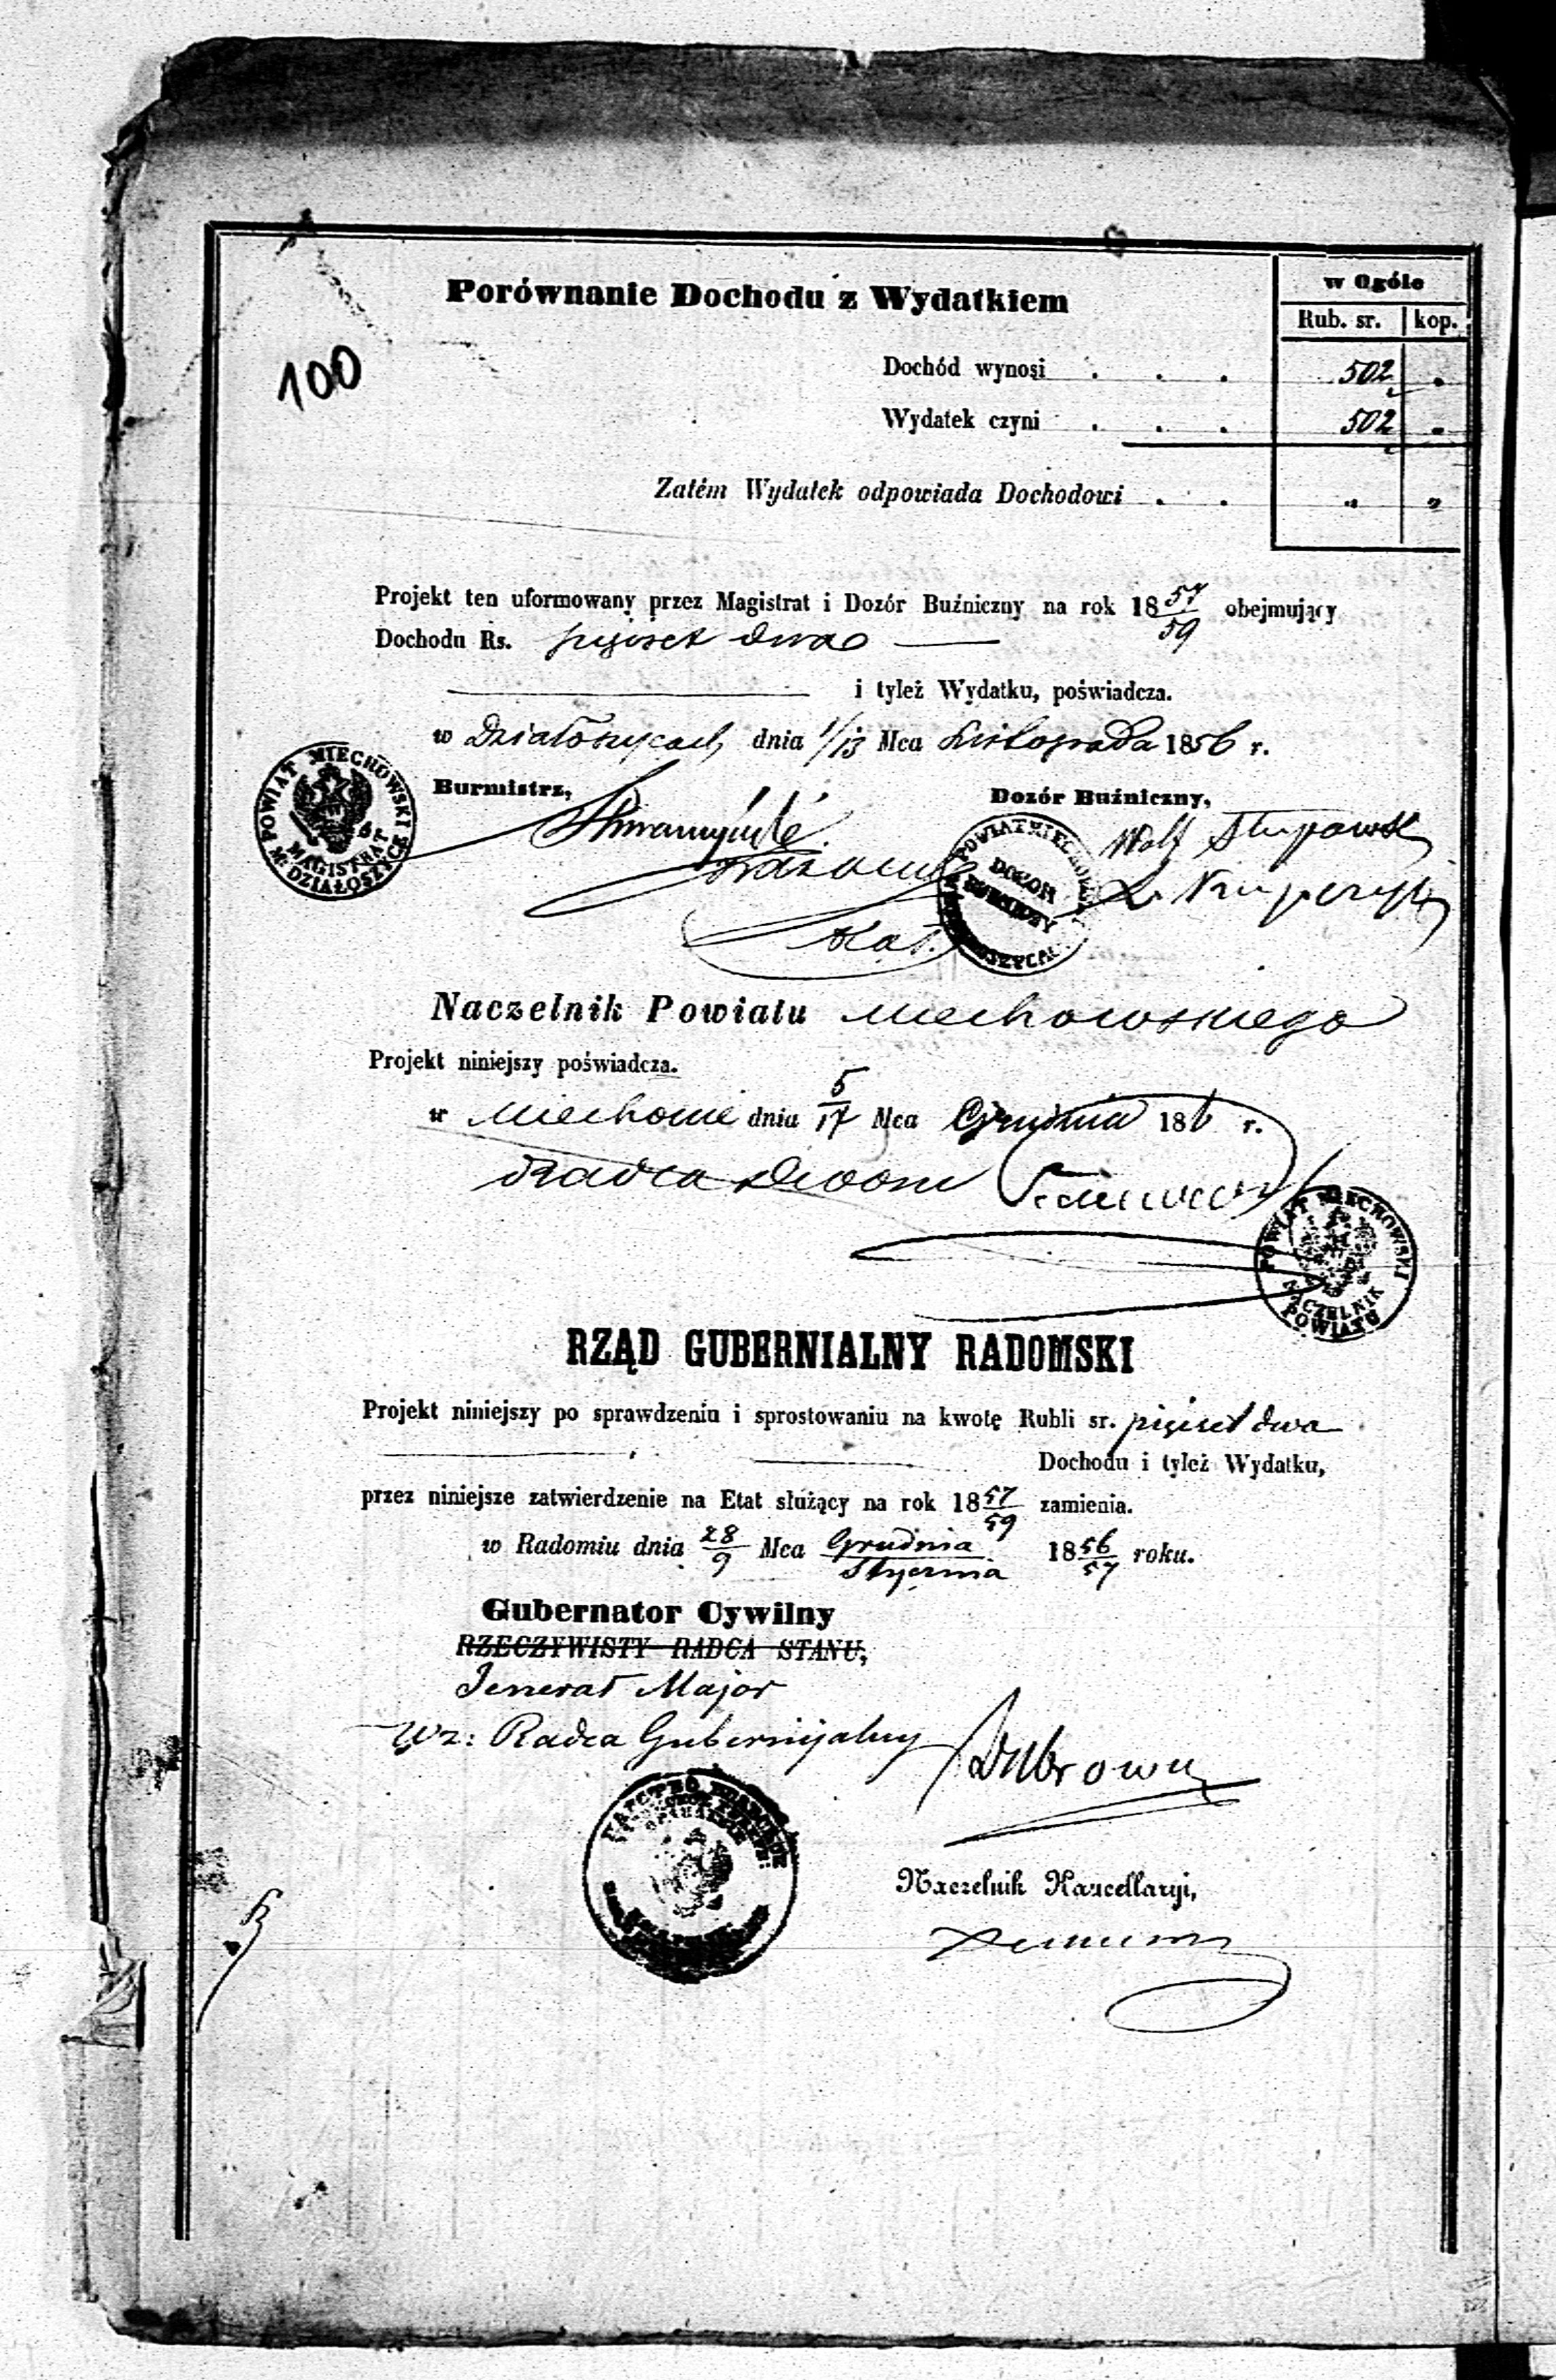 Porównanie Dochodu z Wydatkiem
w Ogóle
Rub. sr. kop.
100
Dochód wynosi . . . 502 "
Wydatek czyni . . . 502 "
Zatém Wydatek odpowiada Dochodowi . . " "
Projekt ten uformowany przez Magistrat i Dozór Buźniczny na rok 18 57/59 obejmujący
Dochodu Rs. pięset dwa
i tyleż Wydatku, poświadcza.
w Działoszycach dnia 1/13 Mca Listopada 1856 r.
POWIAT MIECHOWSKI
MAGISTRAT
M. DZIAŁOSZYCE
Burmistrz,
Dozór Buźniczny,
Wolf
Kas.
POWIAT MIECHOWSKI
DOZOR
Naczelnik Powiatu Miechowskiego
Projekt niniejszy poświadcza.
w Miechowie dnia 5/17 Mca Grudnia 186 r.
Radca Dworu
POWIAT MIECHOWSKI
NACZELNIK
POWIATU
RZĄD GUBERNIALNY RADOMSKI
Projekt niniejszy po sprawdzeniu i sprostowaniu na kwotę Rubli sr. pięset dwa
Dochodu i tyleż Wydatku,
przez niniejsze zatwierdzenie na Etat służący na rok 18 57/59 zamienia.
w Radomiu dnia 28/9 Mca Grudnia/Stycznia 18 56/57 roku.
Gubernator Cywilny
RZECZYWISTY RADCA STANU,
Jenerał Major
Wz: Radca Gubernijalny
Naczelnik Kancellaryi,